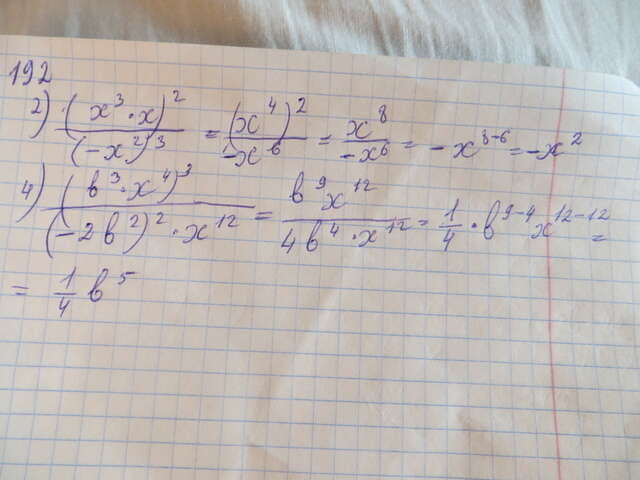 192
2) (x³·x)² / (-x²)³ = (x⁴)² / -x⁶ = x⁸ / -x⁶ = -x⁸⁻⁶ = -x²
4) (b³·x⁴)³ / (-2b²)²·x¹² = b⁹x¹² / 4b⁴·x¹² = 1/4·b⁹⁻⁴x¹²⁻¹² =
= 1/4 b⁵